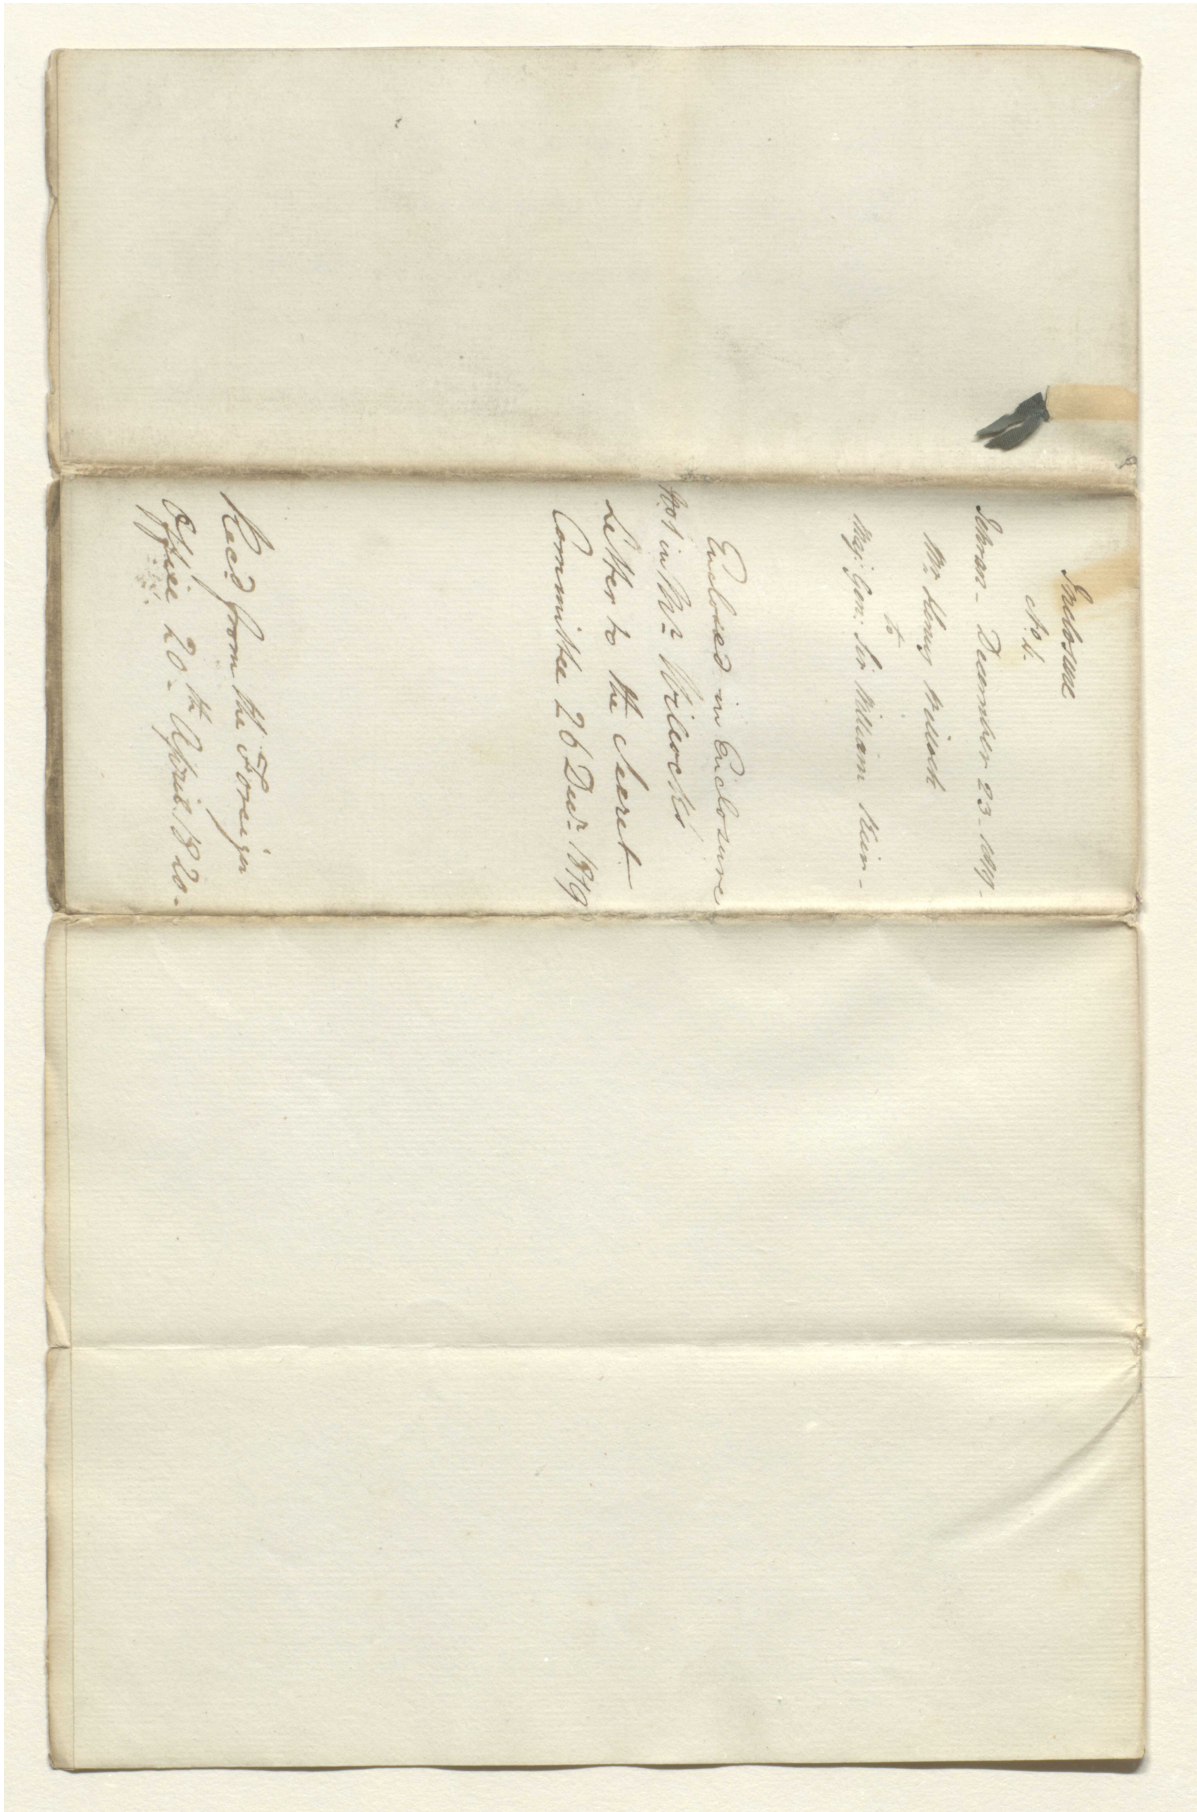 Inclosure
No 1.
Tehran - December 23 - 1819 -
Mr. Henry Willock
to
Maj: Gen: Sir William Keir -
Enclosed in Enclosure
No 1 in Mr. Willock's
Letter to the Secret
Committee 26 Decr. 1819
Recd. from the Foreign
Office 20th April 1820 -